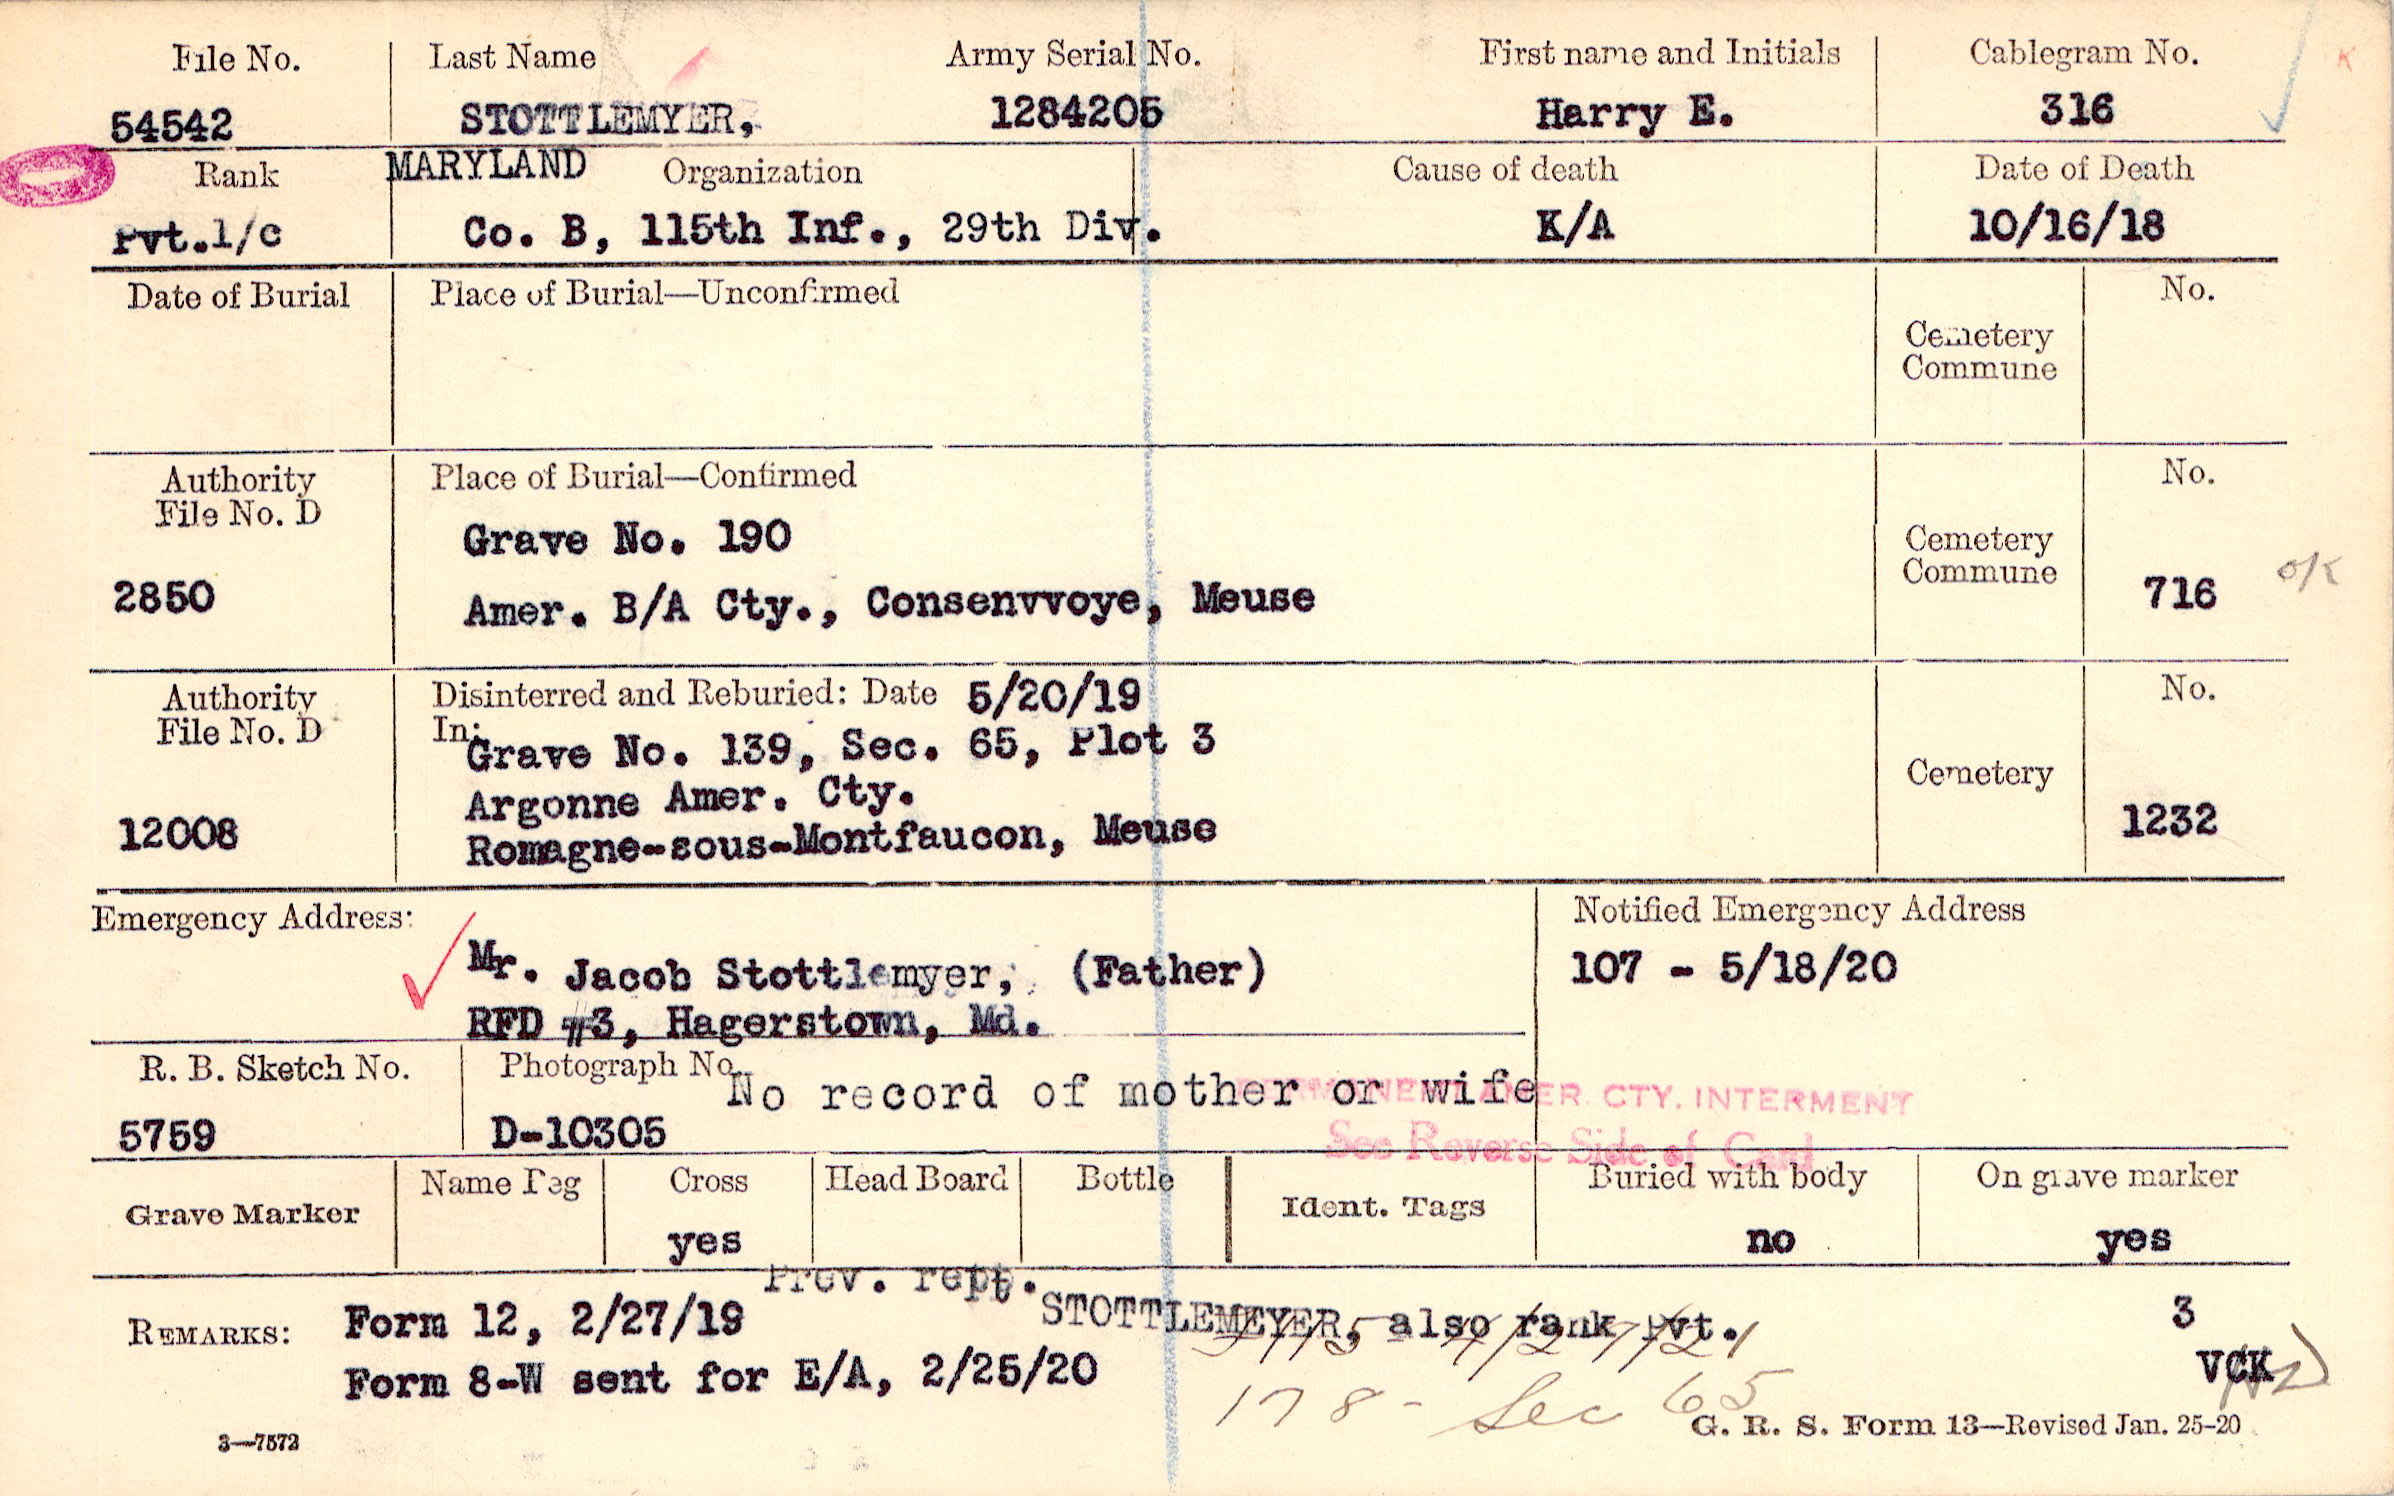 File No. Last Name Army Serial No. First name and Initials Cablegram No. K
54542 STOTTLEMYER, 1284205 Harry E. 316
Rank MARYLAND Organization Cause of death Date of Death
Pvt.1/c Co. B, 115th Inf., 29th Div. K/A 10/16/18
Date of Burial Place of Burial—Unconfirmed No.
Cemetery
Commune
Authority Place of Burial—Confirmed No.
File No. D
Grave No. 190 Cemetery
Commune o/k
2850 Amer. B/A Cty., Consenvvoye, Meuse 716
Authority Disinterred and Reburied: Date 5/20/19 No.
File No. D In:
Grave No. 139, Sec. 65, Plot 3
Cemetery
Argonne Amer. Cty.
12008 Romagne-sous-Montfaucon, Meuse 1232
Emergency Address: Notified Emergency Address
Mr. Jacob Stottlemyer, (Father) 107 - 5/18/20
RFD #3, Hagerstown, Md.
R. B. Sketch No. Photograph No.
No record of mother or wife
PERMANENT AMER. CTY. INTERMENT
5759 D-10305 See Reverse Side of Card
Grave Marker Name Peg Cross Head Board Bottle Ident. Tags Buried with body On grave marker
yes no yes
Prev. rept.
REMARKS: Form 12, 2/27/19 STOTTLEMEYER, also rank Pvt. 3
Form 8-W sent for E/A, 2/25/20 VCK
178 - Sec 65
3—7572 G. R. S. Form 13—Revised Jan. 25-20